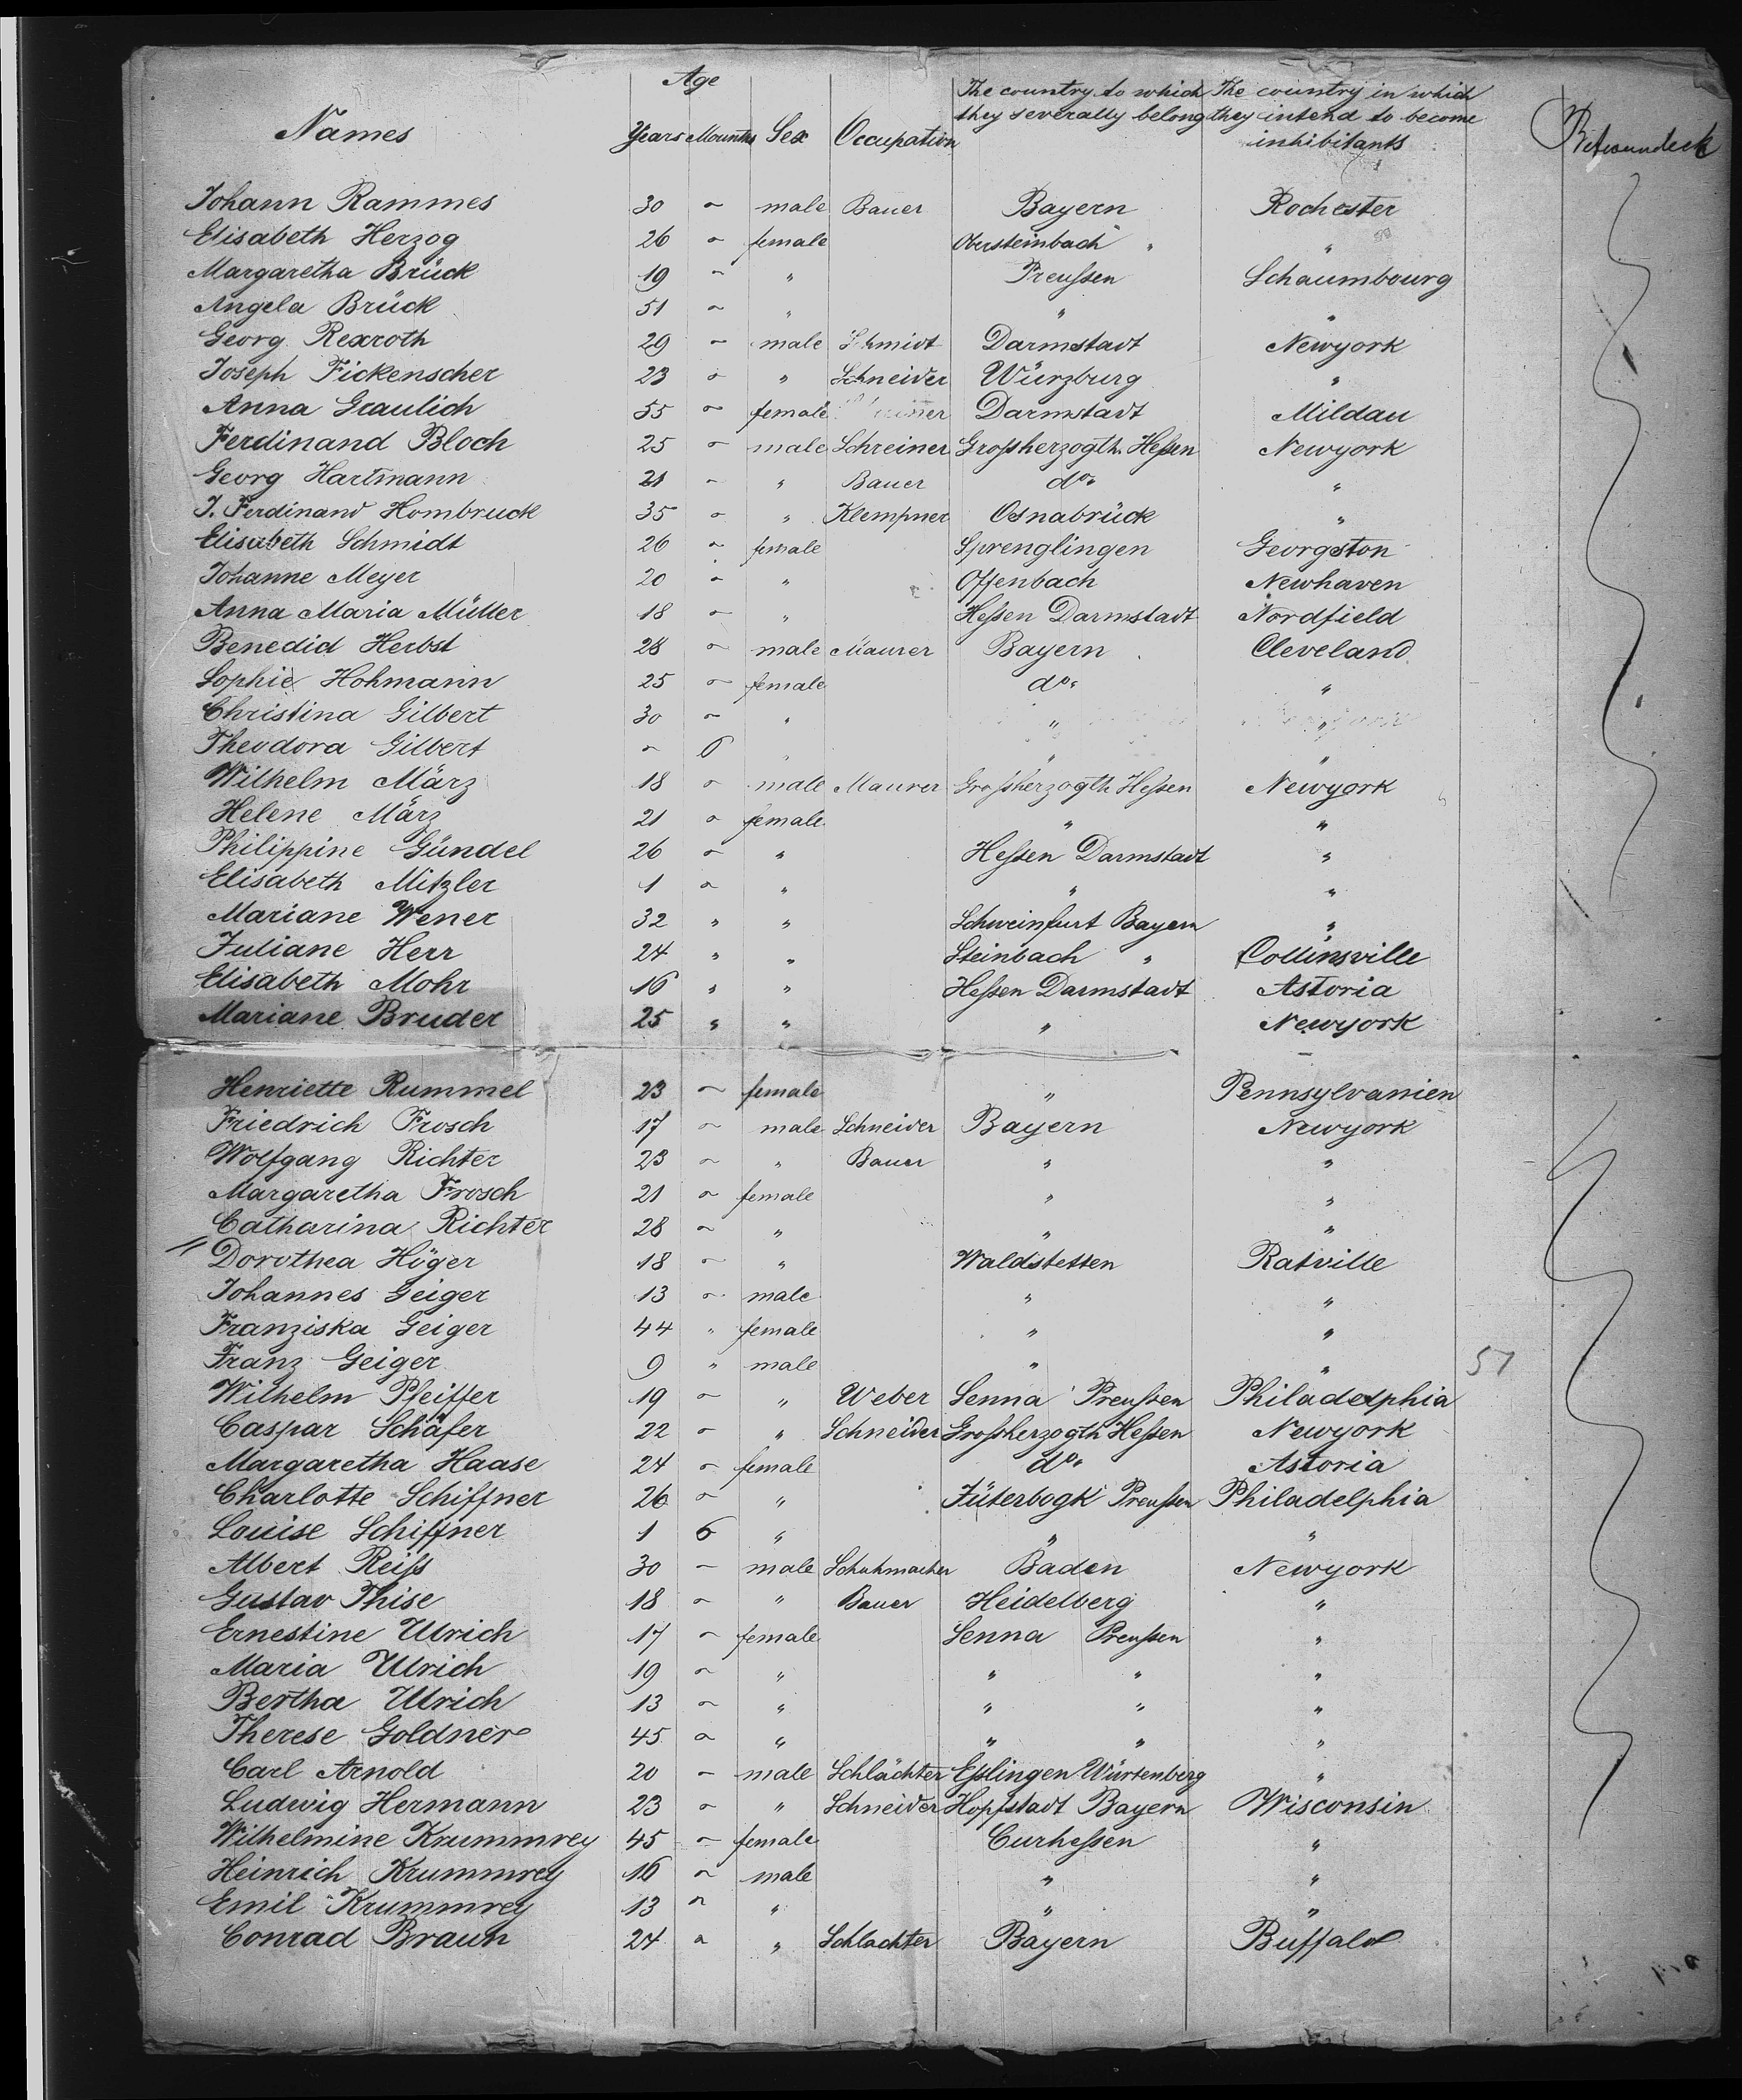 Age
The country to which The country in which
Names Years Mounths Sex Occupation they severally belong they intend to become
inhibitants
Johann Rammes 30 " male Bauer Bayern Rochester
Elisabeth Herzog 26 " female Obersteinbach " "
Margaretha Brück 19 " " Preußen Schaumbourg
Angela Brück 51 " " " "
Georg Rexroth 29 " male Schmidt Darmstadt Newyork
Joseph Fickenscher 23 " " Schneider Würzburg "
Anna Graulich 55 " female Darmstadt Mildau
Ferdinand Bloch 25 " male Schreiner Großherzogth. Heßen Newyork
Georg Hartmann 21 " " Bauer do. "
J. Ferdinand Hombruck 35 " " Klempner Osnabrück "
Elisabeth Schmidt 26 " female Sprenglingen Georgston
Johanne Meyer 20 " " Offenbach Newhaven
Anna Maria Müller 18 " " Heßen Darmstadt Nordfield
Benedid Herbst 28 " male Maurer Bayern Cleveland
Sophie Hohmann 25 " female do. "
Christina Gilbert 30 " " " "
Theodora Gilbert " 6 " " "
Wilhelm März 18 " male Maurer Großherzogth Heßen Newyork
Helene März 21 " female " "
Philippine Gündel 26 " " Heßen Darmstadt "
Elisabeth Mitzler 1 " " " "
Mariane Wener 32 " " Schweinfurt Bayern "
Juliane Herr 24 " " Steinbach " Collinsville
Elisabeth Mohr 16 " " Heßen Darmstadt Astoria
Mariane Bruder 25 " " " Newyork
Henriette Rummel 23 " female " Pennsylvanien
Friedrich Frosch 17 " male Schneider Bayern Newyork
Wolfgang Richter 23 " " Bauer " "
Margaretha Frosch 21 " female " "
Catharina Richter 28 " " " "
Dorothea Höger 18 " " Waldstetten Ratville
Johannes Geiger 13 " male " "
Franziska Geiger 44 " female " "
Franz Geiger 9 " male " " 51
Wilhelm Pfeiffer 19 " " Weber Senna Preußen Philadelphia
Caspar Schäfer 22 " " Schneider Großherzogth Heßen Newyork
Margaretha Haase 24 " female do. Astoria
Charlotte Schiffner 26 " " Jüterbogk Preußen Philadelphia
Louise Schiffner 1 6 " " "
Albert Reiß 30 " male Schuhmacher Baden Newyork
Gustav Thise 18 " " Bauer Heidelberg "
Ernestine Ulrich 17 " female Senna Preußen "
Maria Ulrich 19 " " " " "
Bertha Ulrich 13 " " " " "
Therese Goldner 45 " " " " "
Carl Arnold 20 " male Schlächter Eßlingen Würtenberg "
Ludwig Hermann 23 " " Schneider Hopfstadt Bayern Wisconsin
Wilhelmine Krummrey 45 " female Curheßen "
Heinrich Krummrey 16 " male " "
Emil Krummrey 13 " " " "
Conrad Braun 24 " " Schlachter Bayern Buffalo